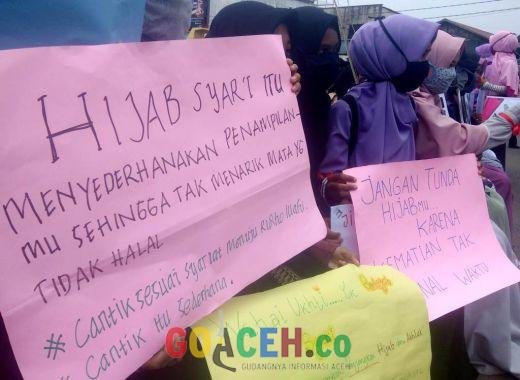 HIJAB SYAR'I ITU
MENYEDERHANAKAN PENAMPILAN-
MU SEHINGGA TAK MENARIK MATA YG
TIDAK HALAL
# Cantik sesuai syariat menuju Ridho Illahi..
# Cantik itu sederhana.
JANGAN TUNDA
HIJABMU...
KARENA
KEMATIAN TAK
NAL WAKTU
Wahai Ukhti.....Yuk
Hijab dan Akhlak
GOACEH.co
GUDANGNYA INFORMASI ACEH